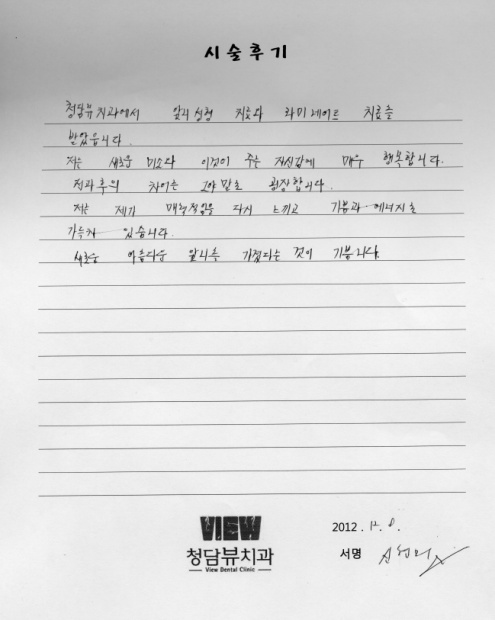 시술후기
청담뷰치과에서 앞니성형 치료와 라미네이트 치료를
받았읍니다.
저는 새로운 미소와 이것이 주는 자신감에 매우 행복합니다.
전과후의 차이는 그야말로 굉장합니다.
저는 제가 매력적임을 다시 느끼고 기쁨과 에너지로
가득차 있습니다.
새로운 아름다운 앞니를 가졌다는 것이 기쁩니다.
VIEW
청담뷰치과
View Dental Clinic
2012. 12. 8.
서명